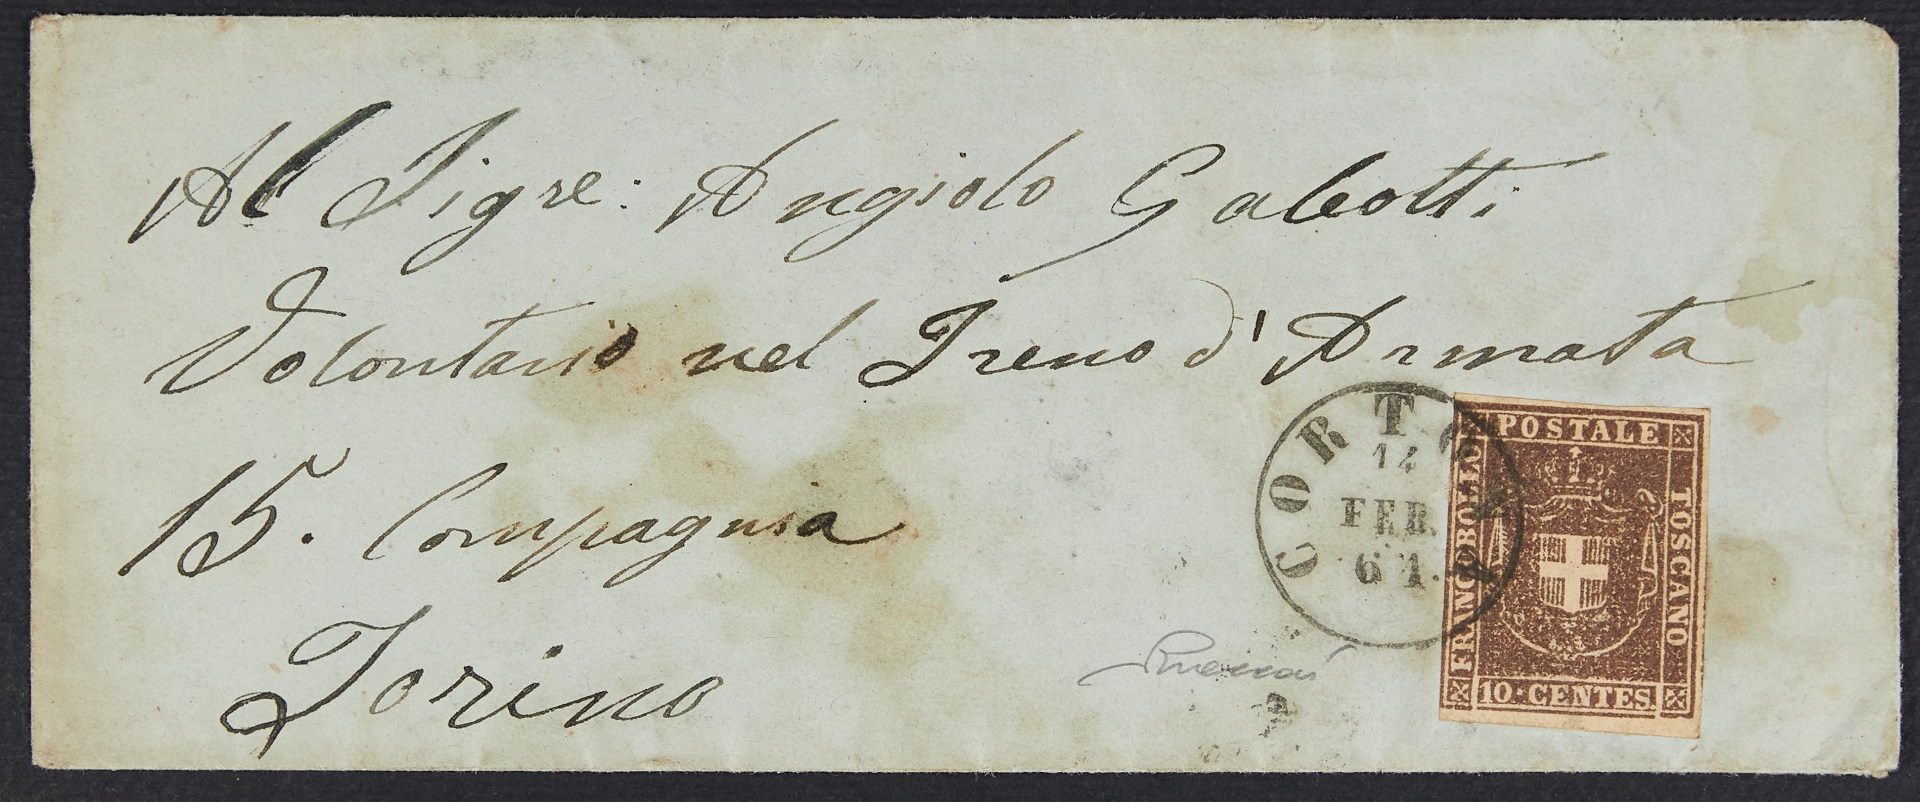 Al Sigre: Angiolo Gabotti
Volontario nel Treno d'Armata
15. Compagnia
Torino
CORTONA
14
FEB.
61.
FRANCOBOLLO
POSTALE
TOSCANO
10·CENTES.